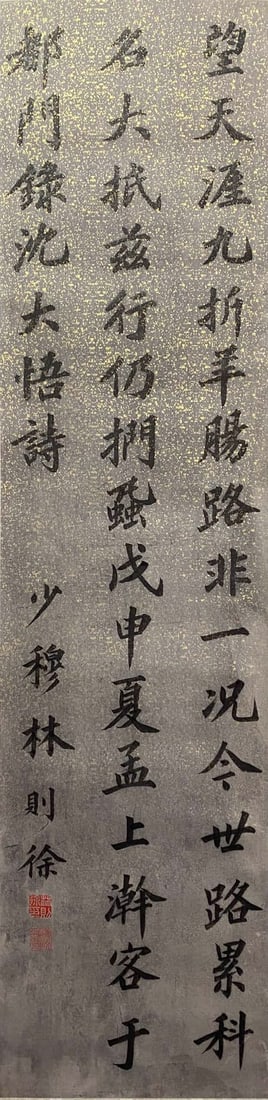 望天涯九折羊腸路非一況今世路累科
名大抵茲行仍捫蝨戊申夏孟上澣容于
都門錄沈大悟詩
少穆林則徐